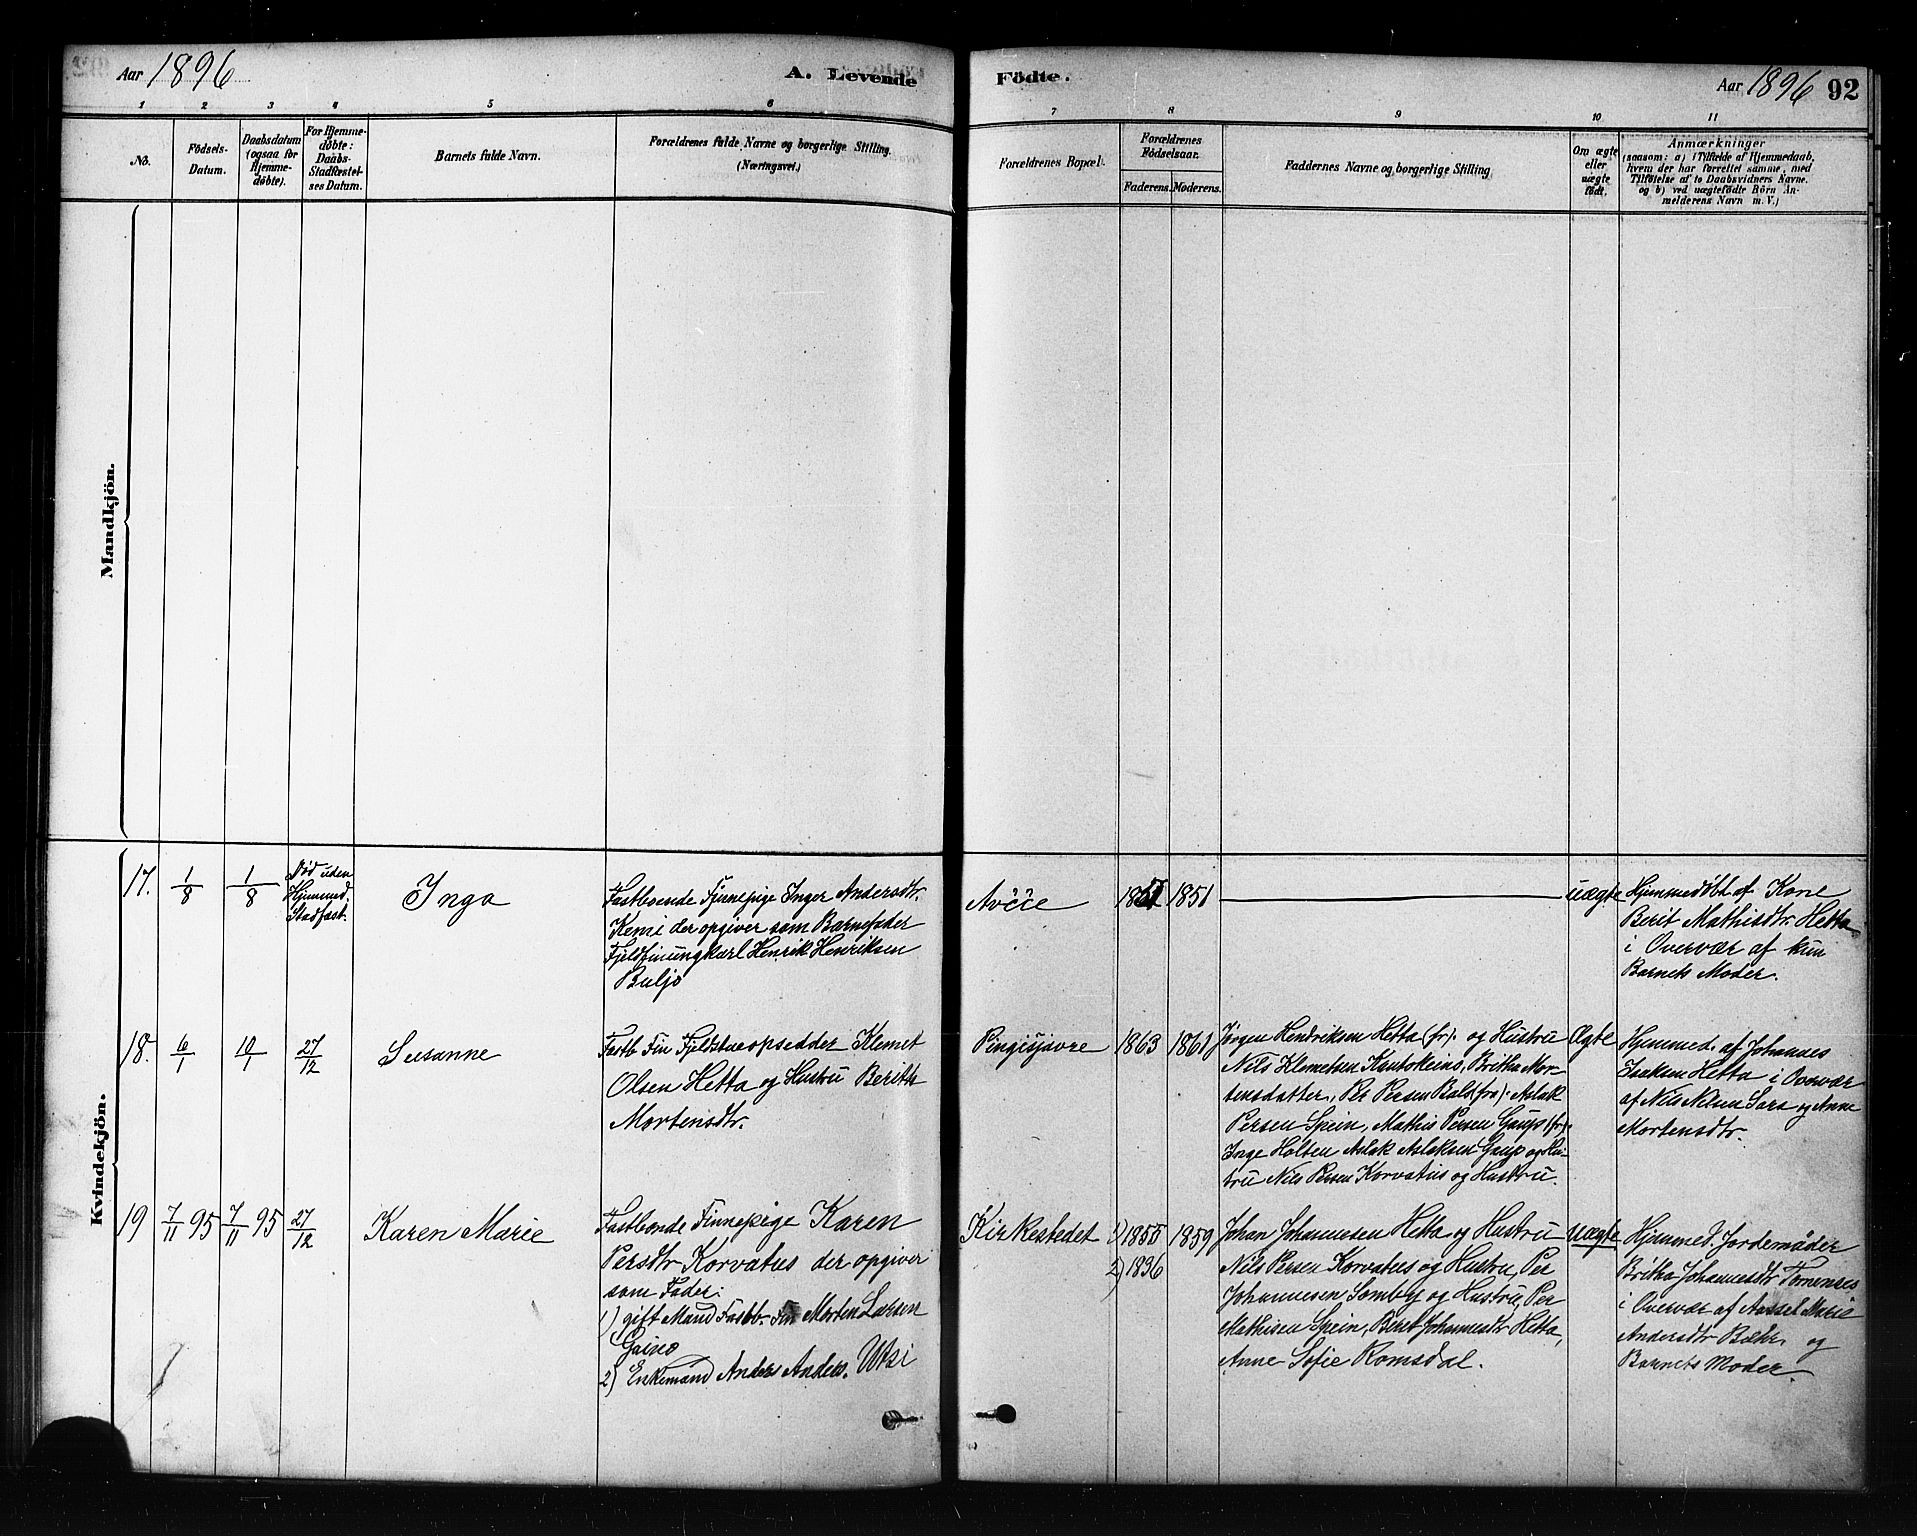 Aar 1896
A. Levende
Fødte.
Aar 1896 92
1 2 3 4 5 6 7 8 9 10 11
No.
Fødsels-
Datum.
Daabsdatum
(ogsaa for
Hjemme-
døbte).
For Hjemme-
døbte:
Daabs-
Stadfæstel-
ses Datum.
Barnets fulde Navn.
Forældrenes fulde Navne og borgerlige Stilling.
(Næringsvei.)
Forældrenes Bopæl.
Forældrenes
Fødselsaar.
Faderens. Moderens.
Faddernes Navne og borgerlige Stilling
Om ægte
eller
uægte
født.
Anmærkninger
(saasom: a) i Tilfælde af Hjemmedaab,
hvem der har forrettet samme, med
Tilføielse af to Daabsvidners Navne.
og b) ved uægtefødte Børn An-
melderens Navn m. V.)
Mandkjön.
Kvindekjön.
17.
1/8
1/8
Død uden
Hjemmed.
Stadfæst.
Inga
Fastboende Finnepige Inger Andersdtr.
Kemi der opgiver som Barnefader
Fjeldfinungkarl Henrik Henriksen
Buljo
1851
uægte
Hjemmedøbt af Kone
Berit Mathisdtr. Hetta
i Overvær af kun
Barnets Moder.
18.
6/1
10/1
27/12
Susanne
Fastb Fin Fjeldstueopsedder Klemet
Olsen Hetta og Hustru Berith
Mortensdtr.
Pingisjavre
1863
1861
Jørgen Hendriksen Hetta (fr). og Hustru
Nils Klemetsen Kautokeino, Britha Mor-
tensdatter, Per Persen Bals (fra). Aslak
Persen Spein, Mathis Persen Gaup (fr).
Inge Holten Aslak Aslaksen Gaup og Hu-
tru Nils Persen Korvatus og Hustru.
Ægte
Hjemmed. af Johannes
Isaksen Hetta i Overvær
af Nils Nilsen Sara og Anne
Mortensdtr.
19
7/11 95
7/11 95
27/12
Karen Marie
Fastboende Finnepige Karen
Persdtr Korvatus der opgiver
som Fader:
1) gift Mand Fastb. Fin Morten Larsen
Gaino
2) Enkemand Anders Anders. Utsi
Kirkestedet
1) 1855
2) 1836
1859
Johan Johannesen Hetta og Hustru
Nils Persen Korvatus og Hustru, Per
Johannesen Somby og Hustru, Per
Mathisen Spein, Berit Johannesdtr Hetta,
Anne Sofie Romsdal.
uægte
Hjemmed. Jordemoder
Britha Johannesdtr
i Overvær af Marie
Andersdtr Bæhr og
Barnets Moder.